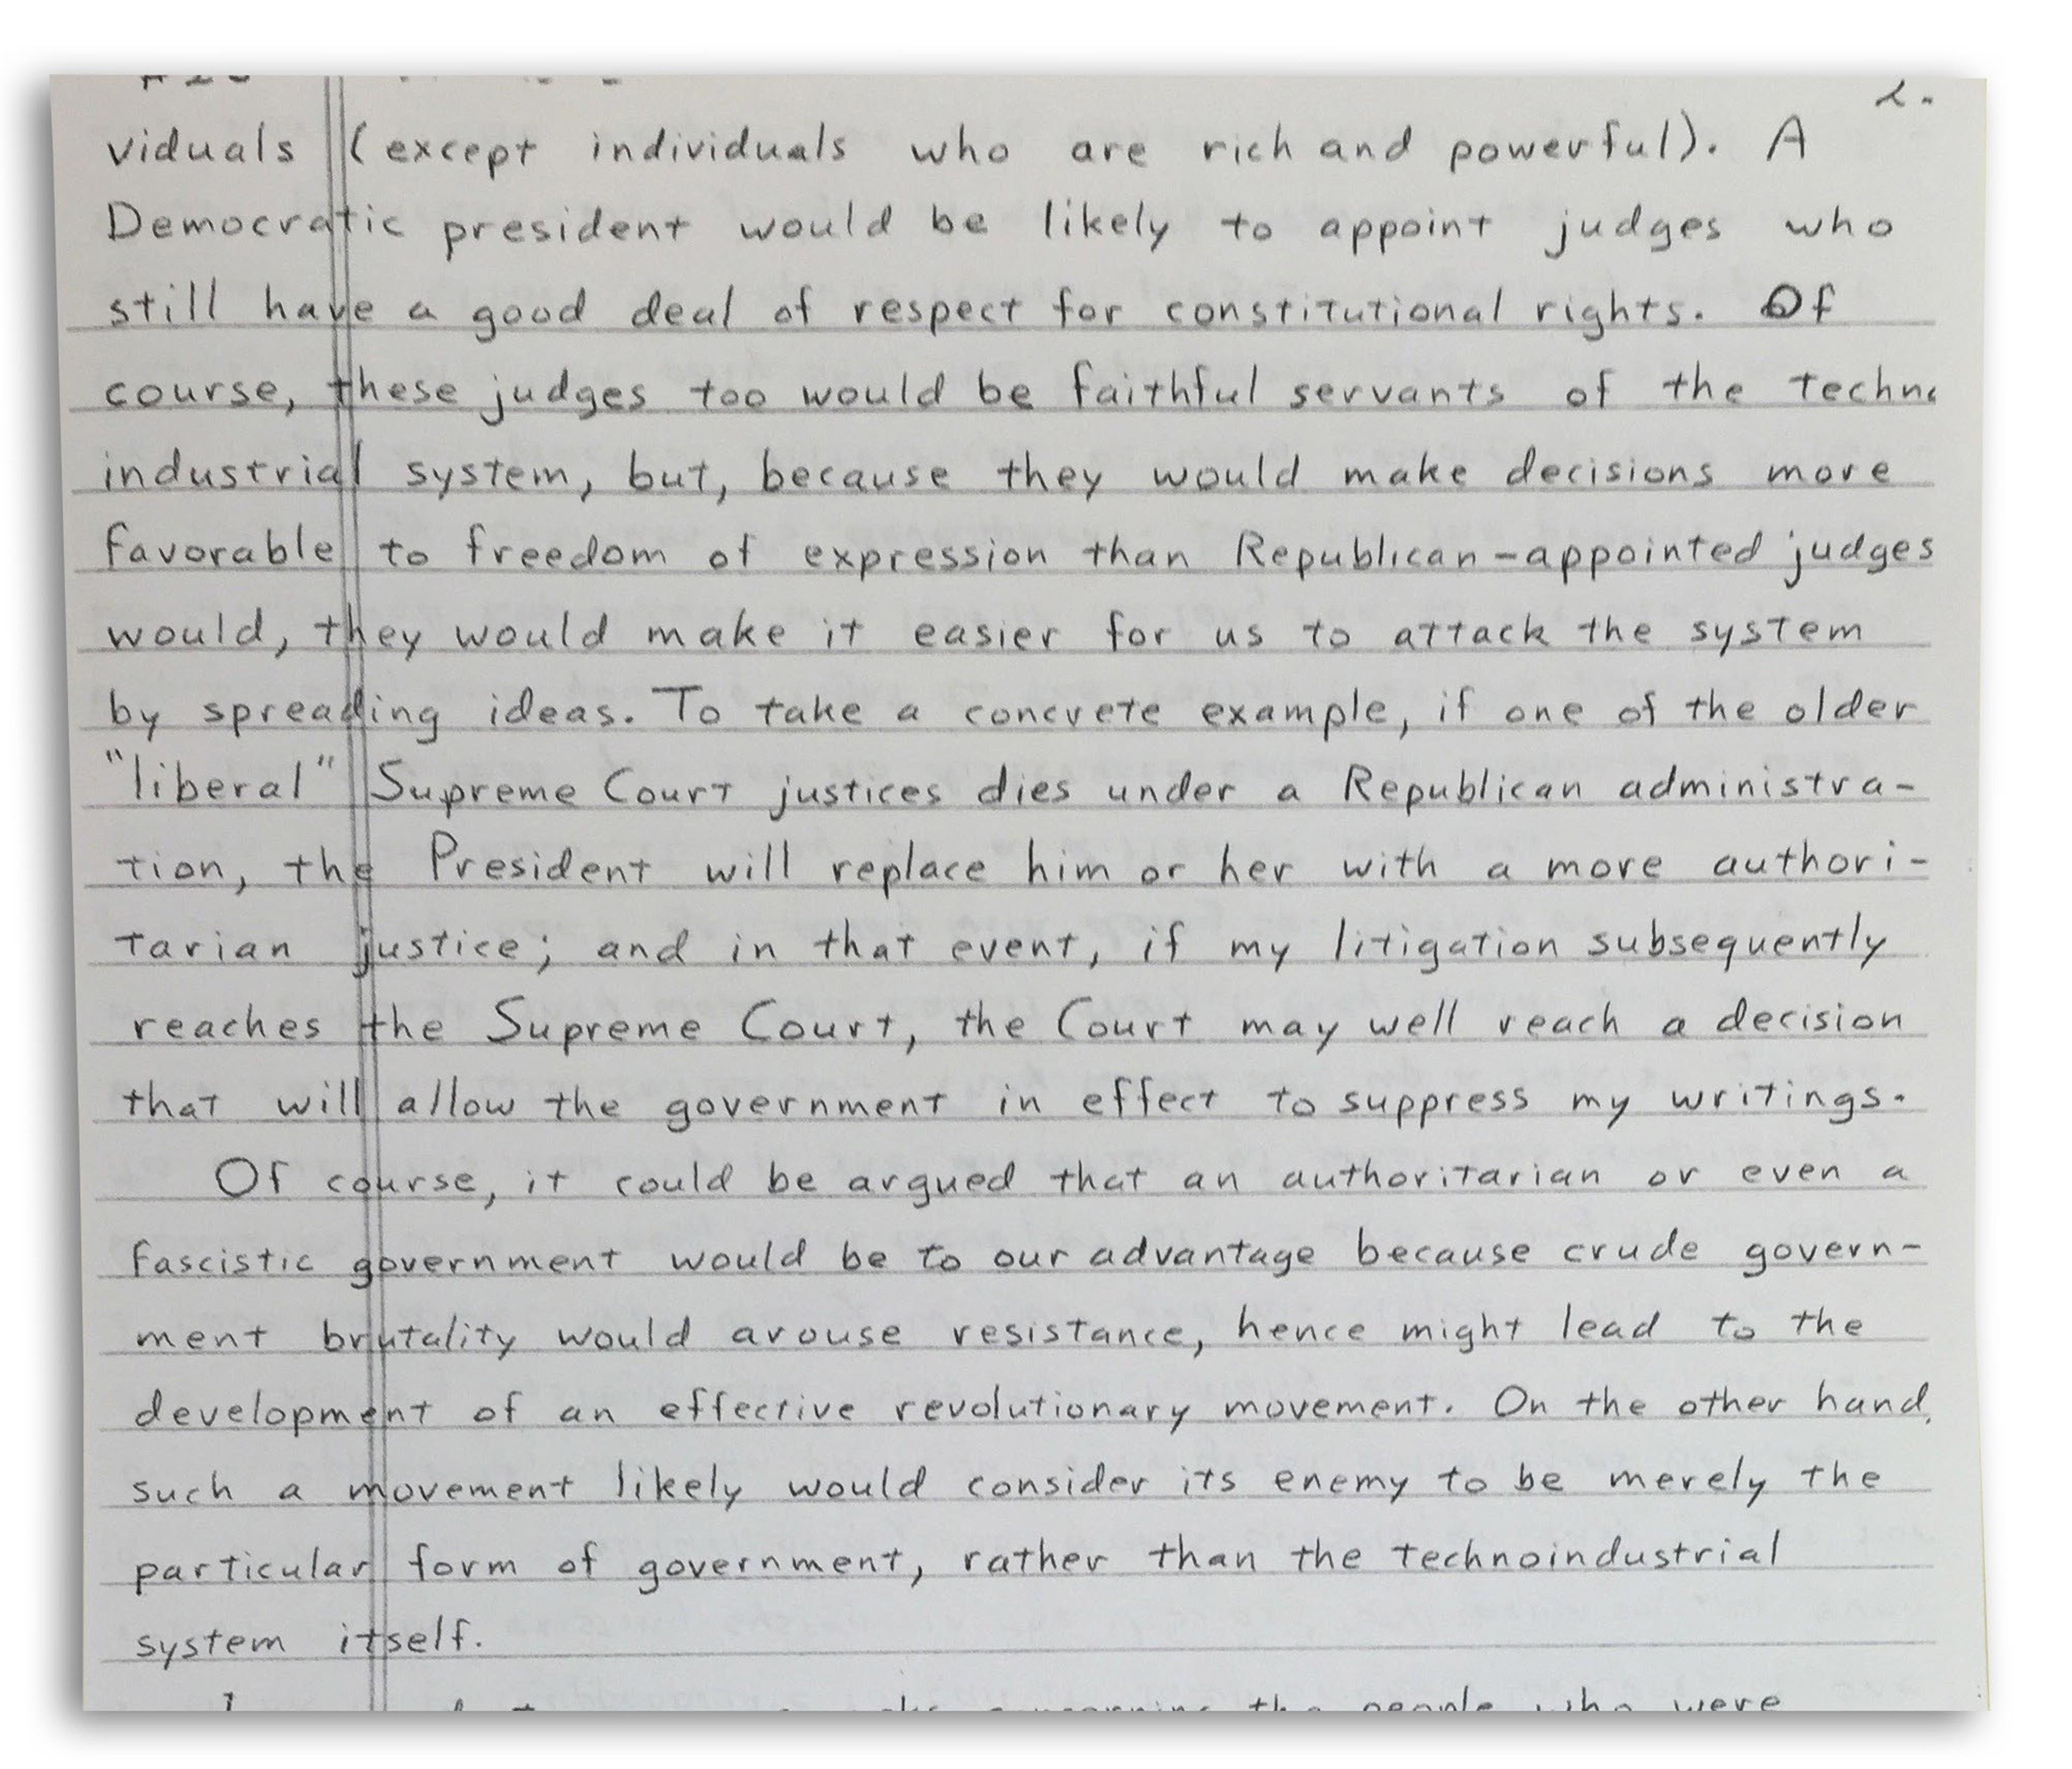 2.
viduals (except individuals who are rich and powerful). A
Democratic president would be likely to appoint judges who
still have a good deal of respect for constitutional rights. Of
course, these judges too would be faithful servants of the techno
industrial system, but, because they would make decisions more
favorable to freedom of expression than Republican-appointed judges
would, they would make it easier for us to attack the system
by spreading ideas. To take a concrete example, if one of the older
"liberal" Supreme Court justices dies under a Republican administra-
tion, the President will replace him or her with a more authori-
tarian justice; and in that event, if my litigation subsequently
reaches the Supreme Court, the Court may well reach a decision
that will allow the government in effect to suppress my writings.
Of course, it could be argued that an authoritarian or even a
fascistic government would be to our advantage because crude govern-
ment brutality would arouse resistance, hence might lead to the
development of an effective revolutionary movement. On the other hand,
such a movement likely would consider its enemy to be merely the
particular form of government, rather than the technoindustrial
system itself.
concerning the people who were